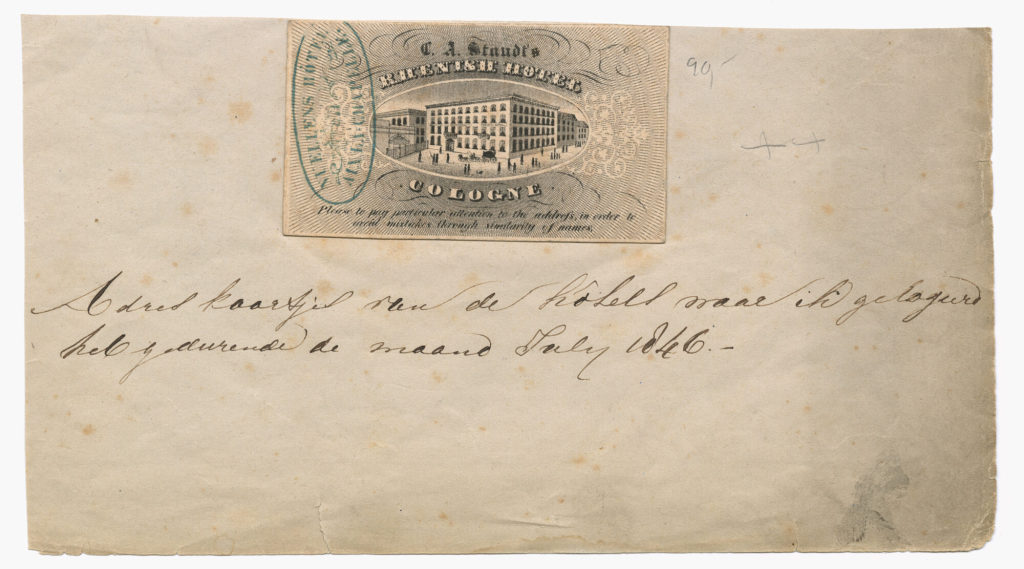 C. A. Staudt's
RHENISH HOTEL
COLOGNE
Please to pay particular attention to the addreſs, in order to
avoid mistakes through similarity of names.
NUELLENS HOTEL
90,-
Adres kaartjes van de hôtels waar ik gelogeerd
heb gedurende de maand July 1846.-